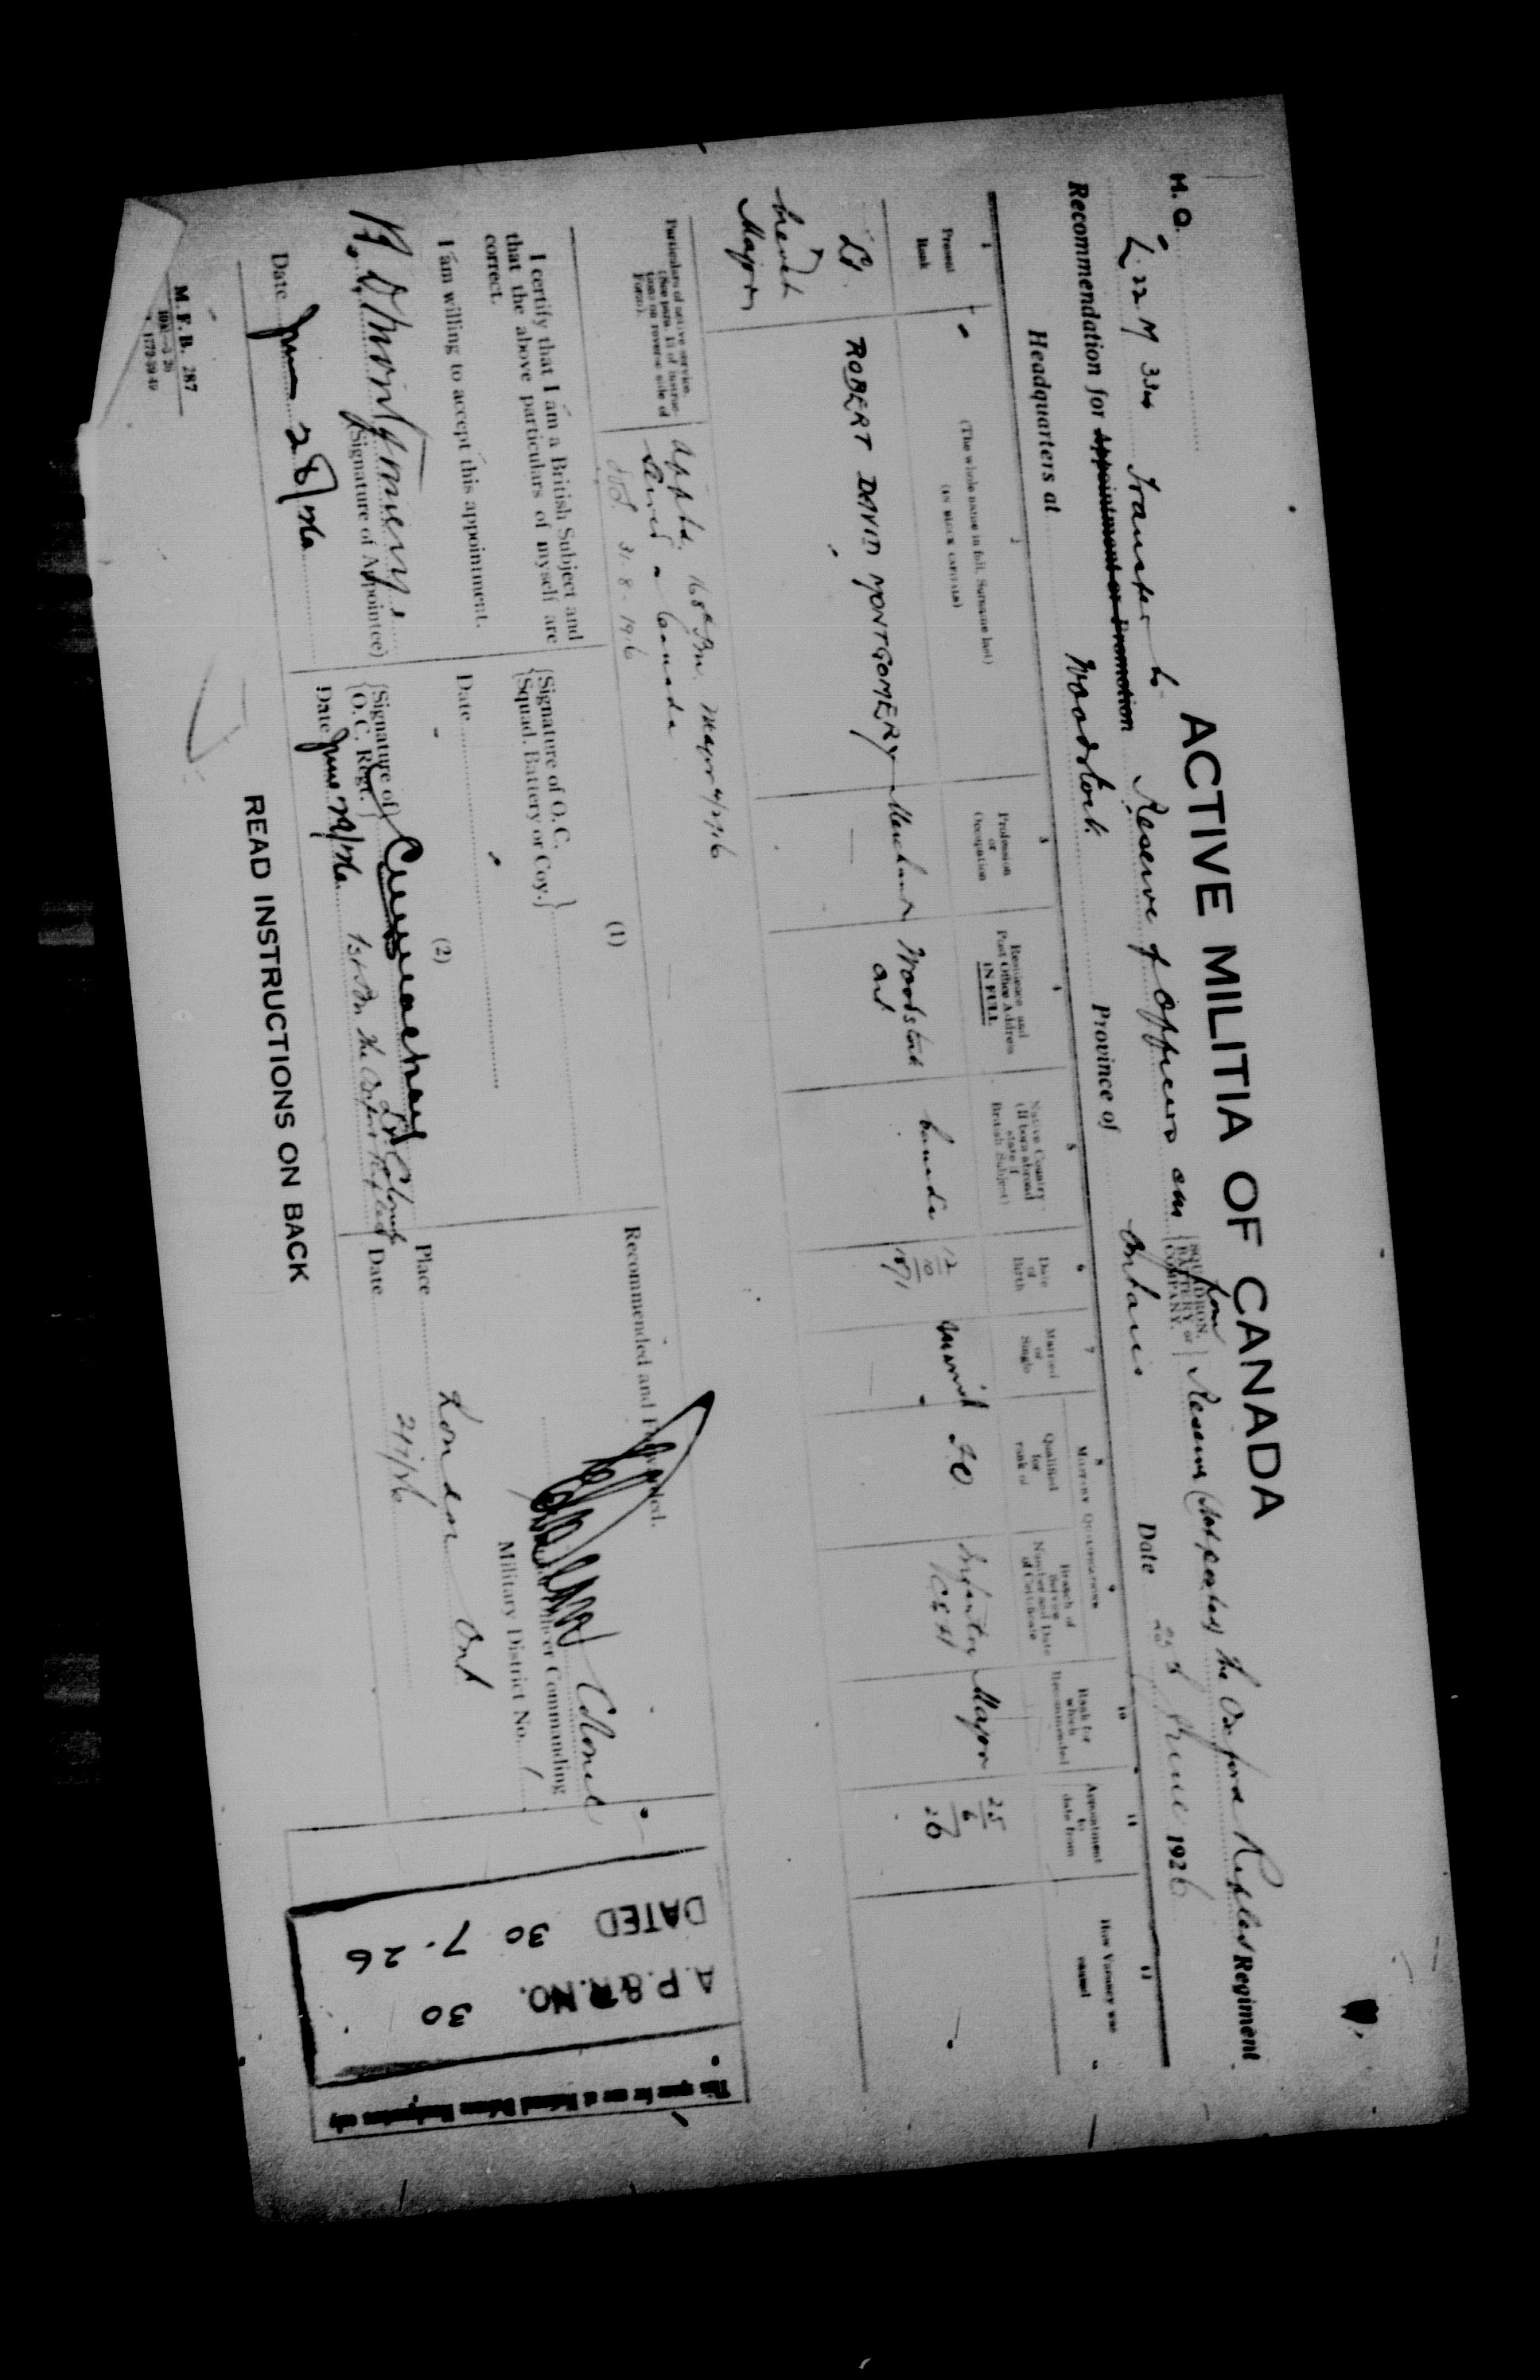 ACTIVE MILITIA OF CANADA
H.Q.
L. 22 M 33
Transfer to Reserve of Officers
from
SQUADRON,
BATTERY or
COMPANY.
Reserve (                ) The Oxford Rifles Regiment
Recommendation for Appointment or Promotion
Headquarters at Woodstock Province of Ontario Date 25 June 1926
1
Present
Rank
2
(The whole name in full, Surname last)
(IN BLOCK CAPITALS)
3
Profession
or
Occupation
4
Residence and
Post Office Address
IN FULL
5
Native Country
(If born abroad
state if
British Subject)
6
Date
of
Birth
7
Married
or
Single
MILITARY QUALIFICATIONS
8
Qualified
for
rank of
9
Branch of
Service
Number and Date
of Certificate
10
Rank for
which
Recommended
11
Appointment
to
date from
12
How Vacancy was
caused
Lt.
brevet
Major
ROBERT DAVID MONTGOMERY
Merchant
Woodstock
Ont
Canada
12
10
1871
Married
F.O.
Infantry
Major
25
6
26
Particulars of active service.
(See para. 13 of instruc-
tions on reverse side of
Form).
Apptd. 168th Bn. Major
Served in Canada
SOS. 31-8-1916
I certify that I am a British Subject and
that the above particulars of myself are
correct.
I am willing to accept this appointment.
R. D. Montgomery
(Signature of Appointee)
Date June 28/26
(1)
{Signature of O.C.
{Squad. Battery or Coy.}
Date
(2)
{Signature of}
{O.C. Regt.}
Lt Colonel
Date June 29/26 1st Bn The Oxford Rifles
Recommended and Forwarded.
Colonel
Officer Commanding
Military District No. 1
Place London Ont
Date 2/7/26
A.P.&R.NO. 30
DATED 30 7-26
This space for use at National Defence Headquarters only
READ INSTRUCTIONS ON BACK
M.F.B. 287
1772-39-40